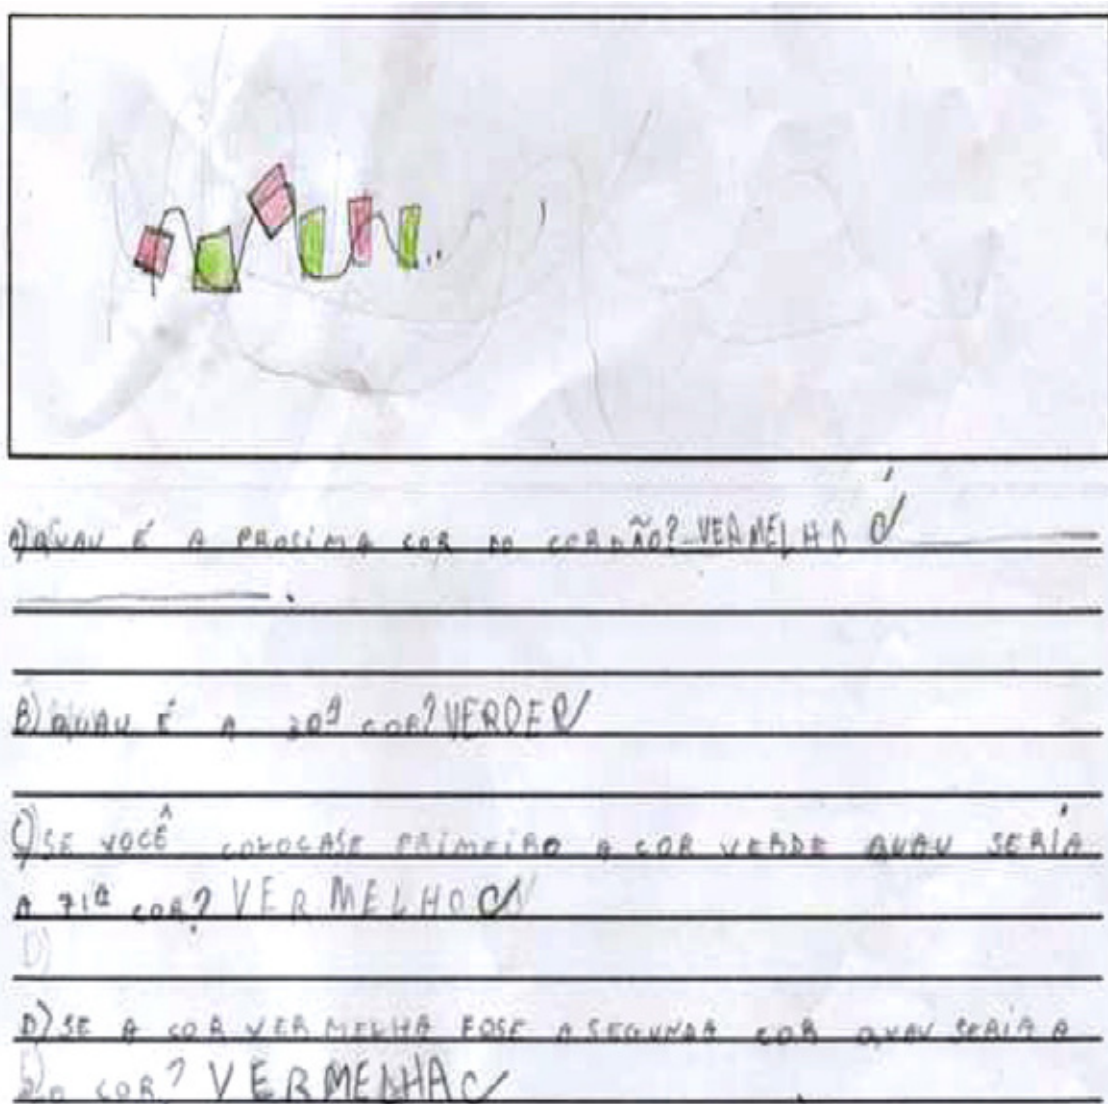 A) QUAU É A PROSIMA COR DO CORDÃO? VERMELHO
B) QUAU É A 30ª COR? VERDE
C) SE VOCÊ COLOCASE PRIMEIRO A COR VERDE QUAU SERÍA
A 71ª COR? VERMELHO
D)
D) SE A COR VERMELHA FOSE A SEGUNDA COR QUAU SERÍA A
COR? VERMELHA